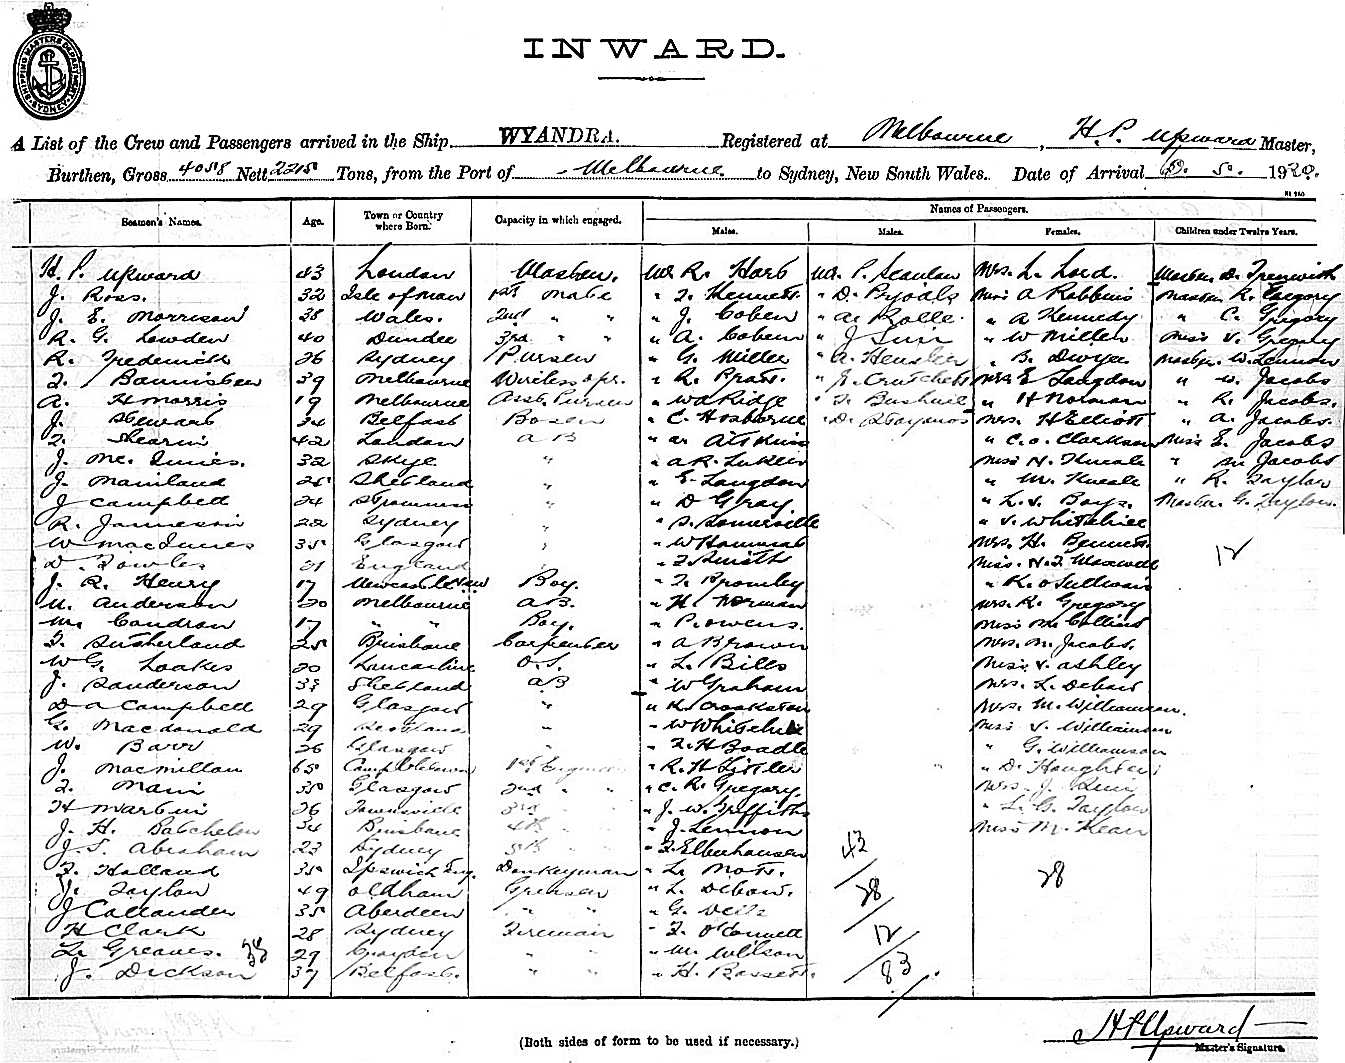 SHIPPING MASTERS DEPARTMENT SYDNEY
INWARD.
A List of the Crew and Passengers arrived in the Ship WYANDRA. Registered at Melbourne, H.P. Upward Master,
Burthen, Gross 4058 Nett 2215 Tons, from the Port of Melbourne to Sydney, New South Wales. Date of Arrival 5. 1920.
Seamen's Names. Age. Town or Country where Born. Capacity in which engaged. Names of Passengers.
Males. Males. Females. Children under Twelve Years.
H. P. Upward 43 London Master. Mr R. Harb Mr. P. Scanlan Mrs. L. Lord. Master D. Trenwith
J. Ross. 32 Isle of Man 1st Mate " " D. " Miss A Robbins Master R. Gregory
J. E. Morrison 38 Wales. 2nd " " " J. Cohen " A. Rolle. " A Kennedy " C. Gregory
R. G. Lowden 40 Dundee 3rd " " " A. Cohen " J " W Miller Miss V. Gregory
R. Frederick 26 Sydney Purser " G. Miller " Hensler " B. Dwyer Master W. Lennon
F. Bannister 39 Melbourne Wireless opr. " R. Pratt. " Crutchett Mrs E Langdon " W. Jacobs
A. H Morris 19 Melbourne Asst. Purser " W A Ridge " Bushill " H Norman " R. Jacobs.
J. Stewart 24 Belfast Bosun " C. Hosborne " D. Mrs. H Elliott " A. Jacobs.
F. 42 London A B " A. Atkins " C. O. Clarkson Miss E. Jacobs
J. Mc. Innes. 32 Skye " " A. R. Miss N. Kneale " M. Jacobs
J. Mainland 25 Shetland " " E. Langdon " M. Kneale " R. Taylor
J Campbell 24 " " D Gray " L. V. Boys. Master G. Taylor.
R. Jamieson 22 Sydney " " S. Somerville " V. Whitehill
W MacInnes 35 Glasgow " " W Hammat Mrs. H. Bennett
D. Fowles 21 England " " F Smith Miss. N. F. Maxwell 12
J. R. Henry 17 Newcastle NSW Boy. " F. Bromley " K. O'Sullivan
M. Anderson 20 Melbourne A.B. " H. Norman Mrs. R. Gregory
M. Condron 17 " " Boy. " P. Owens. Miss M. Collins
F. Sutherland 25 Brisbane Carpenter " A Brown Mrs. M. Jacobs.
W G. Loakes 20 Lancashire O.S. " L. Bills Miss. V. Ashley
J. Sanderson 33 Shetland A B " W Graham Mrs. L. Debow
D A Campbell 29 Glasgow " " K. Crookston Mrs. M. Williamson.
G. Macdonald 29 Scotland " " W Whitehill Miss V. Williamson
W. Barr 26 Glasgow " " F. H Boadle " G. Williamson
J. Macmillan 65 Campbeltown 1st Engineer " R. H Littler " D. Haughter
F. Main 30 Glasgow 2nd " " C. R. Gregory. Mrs. J.
H Martin 26 Townsville 3rd " " J. W. Griffiths " L. G. Taylor
J. H. Batchelor 34 Brisbane 4th " " J. Lennon Miss M. Kean
J. S. Abraham 23 Sydney 5th " " F. Elberhausen 43
F. Holland 35 Ipswich Eng. Donkeyman " L. Mott. 28
J. Taylor 49 Oldham Greaser " L. Debow. 28
J Callander 35 Aberdeen " " " G. Wells
H Clark 28 Sydney Fireman " F. O'Connell 12
L. Greaves. 38 29 Croydon " " " M. Wilson
J. Dickson 37 Belfast. " " " H. Bassett. 83
(Both sides of form to be used if necessary.)
H P Upward
Master's Signature.